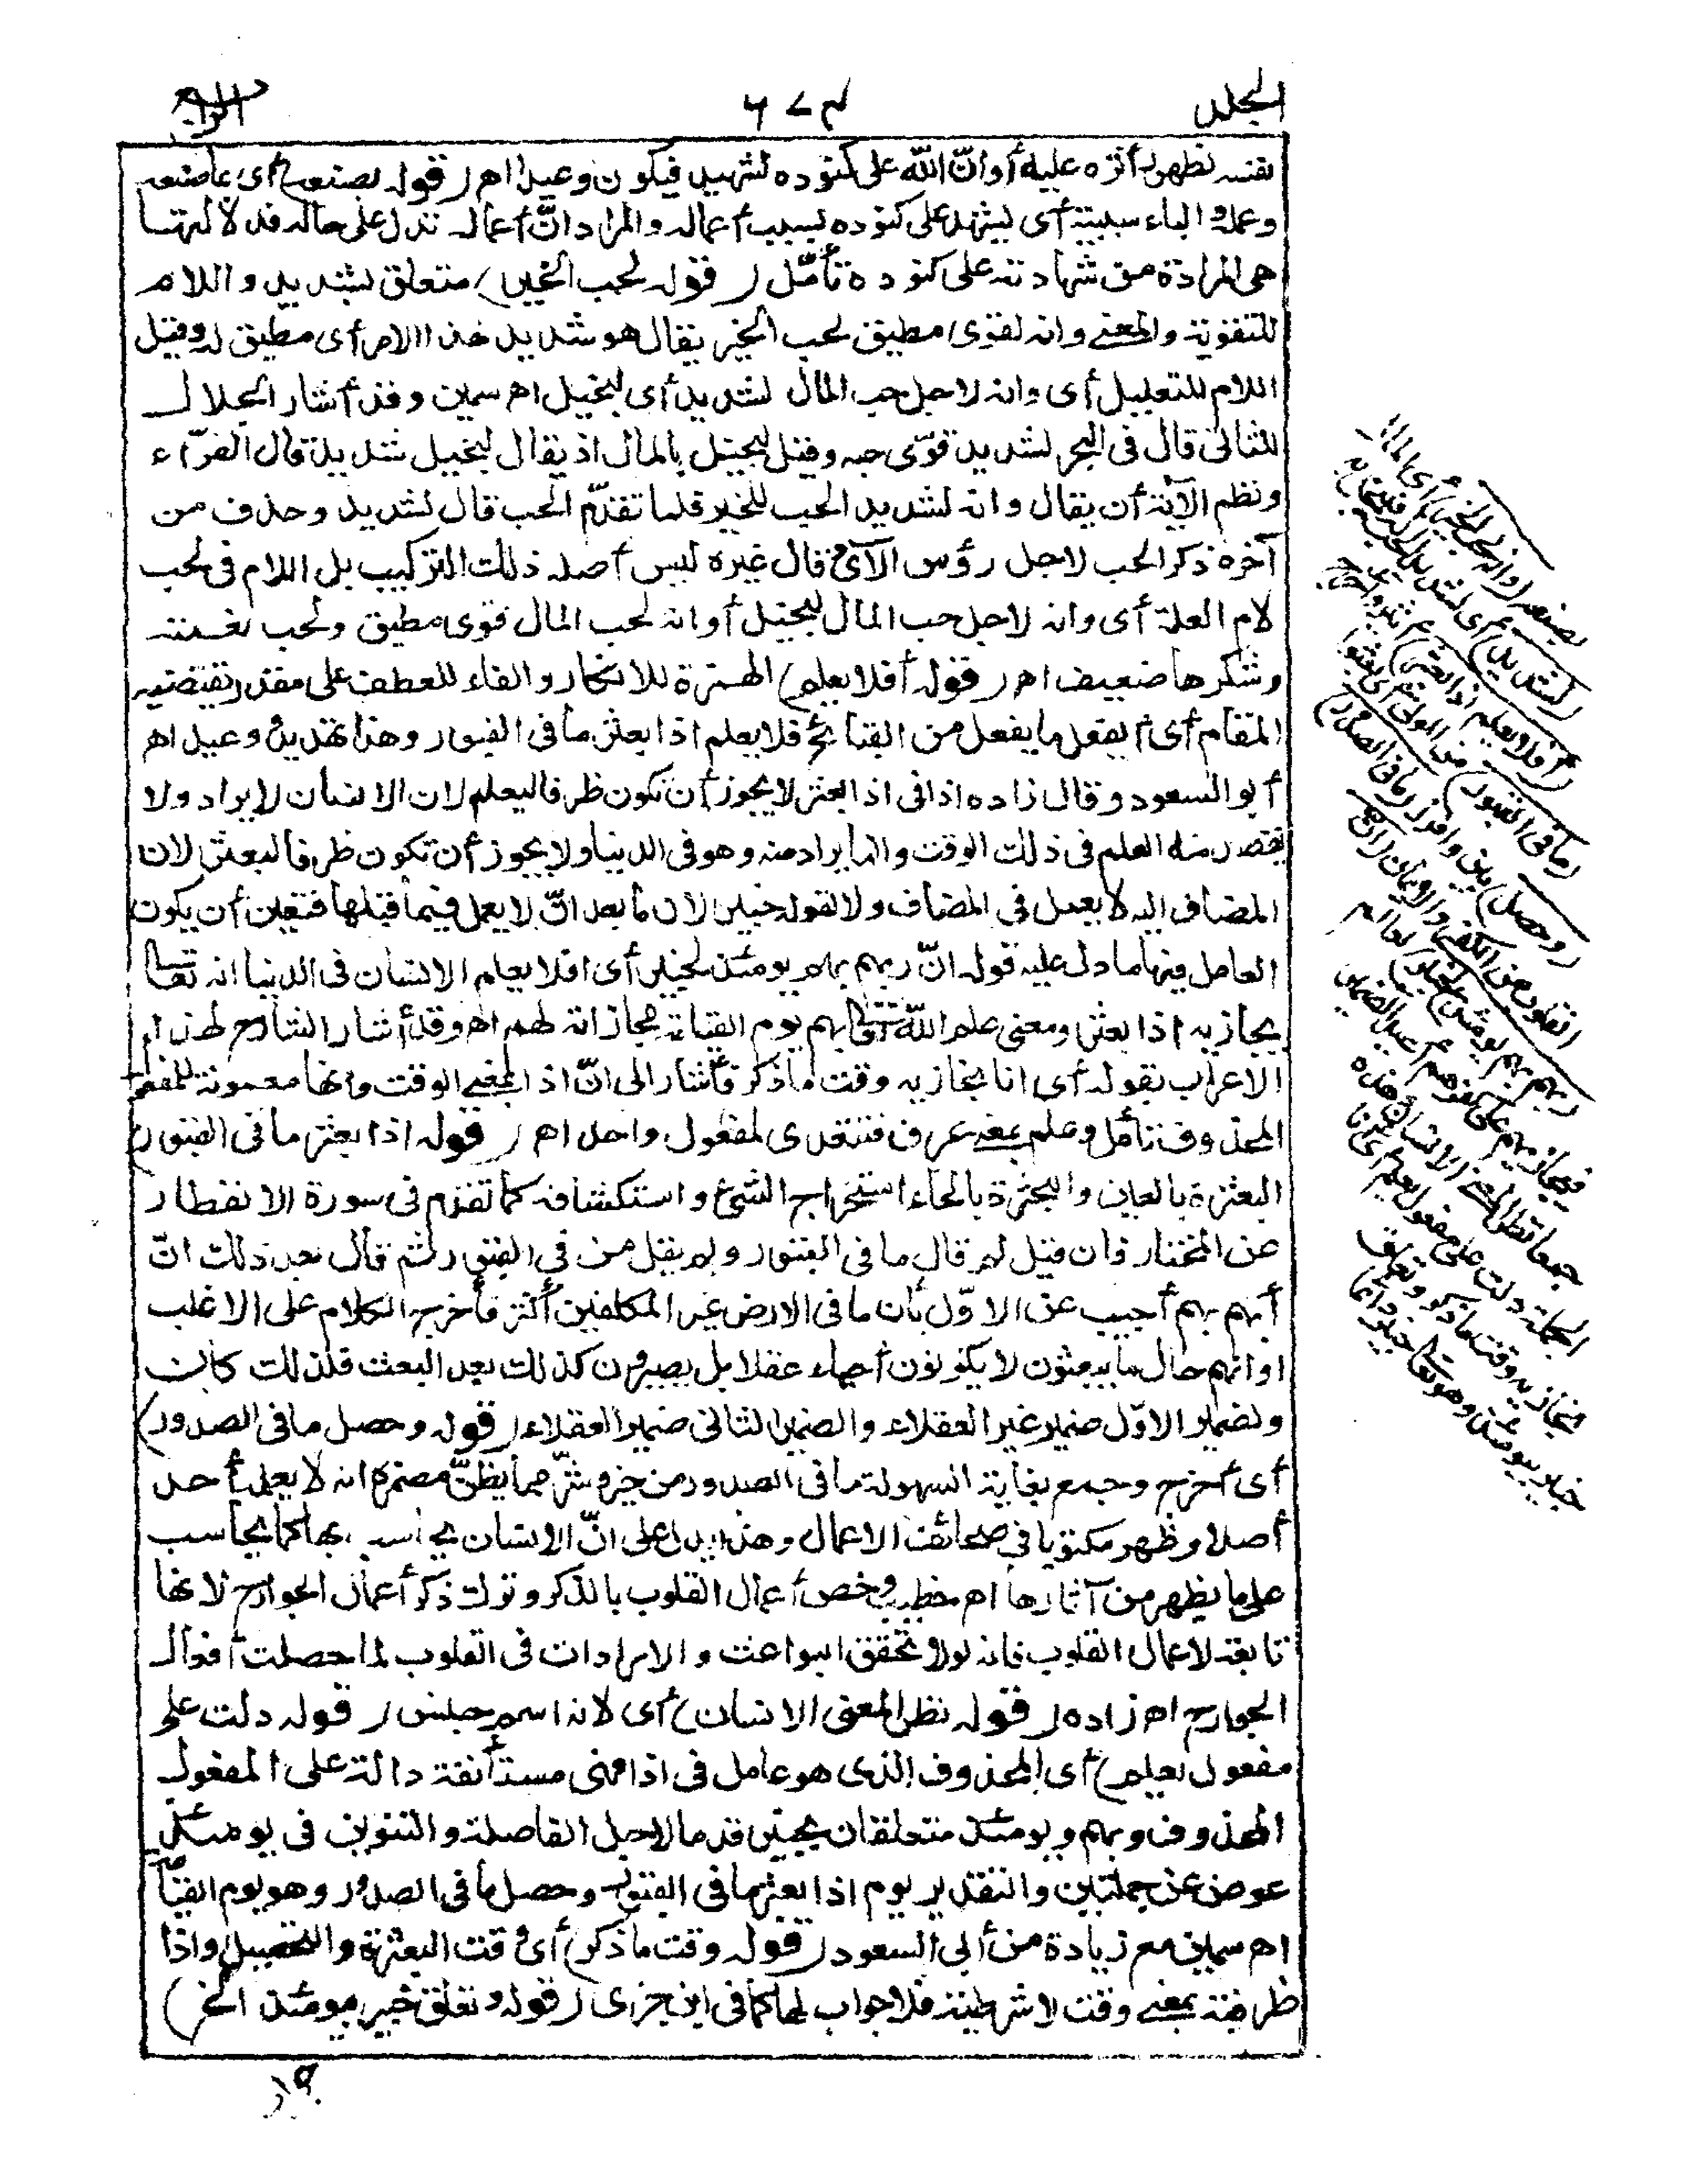 الجلد
٦٧٣
الرابع
نفسه لظهور أثره عليه أو انّ الله على كنوده لشهيد فيكون وعيدا اهـ (قوله بصنعه) أى بما صنعه
وعمله والباء سببية أى يشهد على كنوده بسبب أعماله والمراد انّ أعماله تدل على حاله فدلالتها
هى المرادة من شهادته على كنوده تأمّل (قوله لحب الخير) متعلق بشديد واللام
للتقوية والمعنى وانه لقوى مطيق لحب الخير يقال هو شديد لهذا الامر أى مطيق له وقيل
اللام للتعليل أى وانه لاجل حب المال لشديد أى لبخيل اهـ سمين وقد أشار الجلال
للثانى قال فى البحر لشديد قوّى حبه وقيل لبخيل بالمال اذ يقال لبخيل شديد قال الفرّاء
ونظم الآية أن يقال وانه لشديد الحب للخير فلما تقدّم الحب قال لشديد وحذف من
آخره ذكر الحب لاجل رؤس الآى وقال غيره ليس أصله ذلك التركيب بل اللام فى لحب
لام العلة أى وانه لاجل حب المال لبخيل أو انه لحب المال قوى مطيق ولحب نعمته
وشكرها ضعيف اهـ (قوله أفلا يعلم) الهمزة للانكار والفاء للعطف على مقدر يقتضيه
المقام أى أيفعل ما يفعل من القبائح فلا يعلم اذا بعثر ما فى القبور وهذا تهديد ووعيد اهـ
أبو السعود وقال زاده اذا فى اذا بعثر لا يجوز أن تكون ظرفا ليعلم لان الانسان لا يراد ولا
يقصد منه العلم فى ذلك الوقت وانما يراد منه وهو فى الدنيا ولا يجوز أن تكون ظرفا لبعثر لان
المضاف اليه لا يعمل فى المضاف ولا لقوله خبير لان ما بعد انّ لا يعمل فيما قبلها فتعين أن يكون
العامل فيها ما دل عليه قوله انّ ربهم بهم يومئذ لخبير أى افلا يعلم الانسان فى الدنيا انه تعالى
يجازيه اذا بعثر ومعنى علم الله تعالى بهم يوم القيامة مجازاته لهم اهـ وقد أشار الشارح لهذا
الاعراب بقوله أى انا نجازيه وقت ما ذكر فأشار الى انّ اذا بمعنى الوقت وانها معمولة للمفعول
المحذوف تأمل وعلم بمعنى عرف فتتعدى لمفعول واحد اهـ (قوله اذا بعثر ما فى القبور)
البعثرة بالعين والبحثرة بالحاء استخراج الشئ واستكشافه كما تقدّم فى سورة الانفطار
عن المختار فان قيل لم قال ما فى القبور ولم يقل من فى القبور ثم قال بعد ذلك انّ
ربهم بهم أجيب عن الاوّل بأن ما فى الارض غير المكلفين أكثر فأخرج الكلام على الاغلب
او انهم حال ما يبعثون لا يكونون أحياء عقلا بل يصيرون كذلك بعد البعث فلذلك كان
الضمير الاوّل ضمير غير العقلاء والضمير الثانى ضمير العقلاء (قوله وحصل ما فى الصدور)
أى أخرج وجمع بغاية السهولة ما فى الصدور من خير وشرّ مما يظنّ مضمره انه لا يعلمه أحد
أصلا وظهر مكتوبا فى صحائف الاعمال وهذا يدل على انّ الانسان يحاسب بها كما يحاسب
على ما يظهر من آثارها اهـ خطيب وخص أعمال القلوب بالذكر وترك ذكر أعمال الجوارح لانها
تابعة لاعمال القلوب فانه لولا تحقق البواعث والارادات فى القلوب لما حصلت أفعال
الجوارح اهـ زاده (قوله نظرا لمعنى الانسان) أى لانه اسم جنس (قوله دلت على
مفعول يعلم) أى المحذوف الذى هو عامل فى اذا فهى مستأنفة دالة على المفعول
المحذوف وبهم ويومئذ متعلقان بخبير قدما لاجل الفاصلة والتنوين فى يومئذ
عوض عن جملتين والتقدير يوم اذا بعثر ما فى القبور وحصل ما فى الصدور وهو يوم القيامة
اهـ سمين مع زيادة من أبى السعود (قوله وقت ما ذكر) أى وقت البعثرة والتحصيل واذا
ظرفية بمعنى وقت لا شرطية فلا جواب لها كما فى ابن جزى (قوله وتعلق خبير بيومئذ الخ)
بصنعه (وانه لحب الخير) أى المال
(لشديد) أى لشديد الحب له فيبخل به
(أفلا يعلم اذا بعثر) أثير وأخرج
(ما فى القبور) من الموتى أى بعثوا
(وحصل) بين وأفرز (ما فى الصدور)
القلوب من الكفر والايمان (انّ
ربهم بهم يومئذ لخبير) لعالم
فيجازيهم على كفرهم أعيد الضمير
جمعا نظرا لمعنى الانسان وهذه
الجملة دلت على مفعول يعلم أى انا
نجازيه وقت ما ذكر وتعلق
خبير بيومئذ وهو تعالى خبير دائما